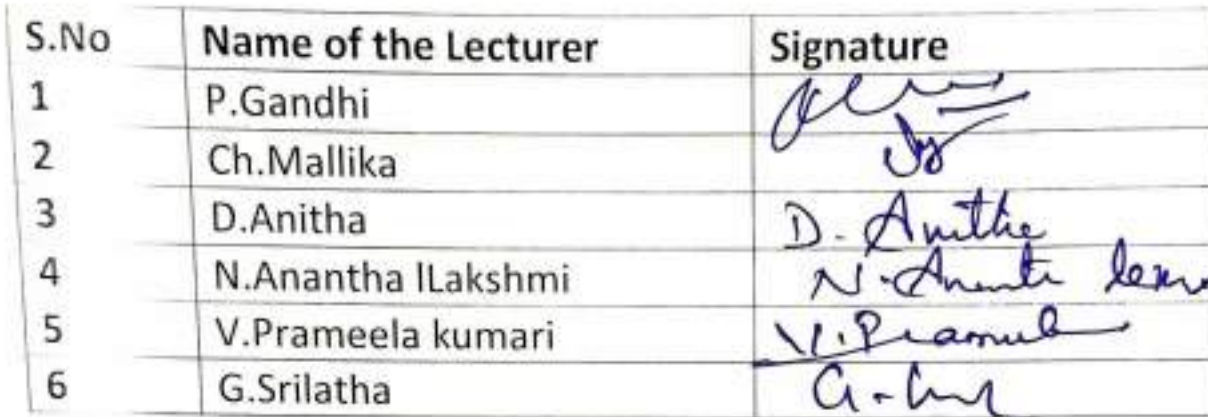 S.No Name of the Lecturer Signature
1 P.Gandhi
2 Ch.Mallika
3 D.Anitha D. Anitha
4 N.Anantha lLakshmi N.
5 V.Prameela kumari V.
6 G.Srilatha G.